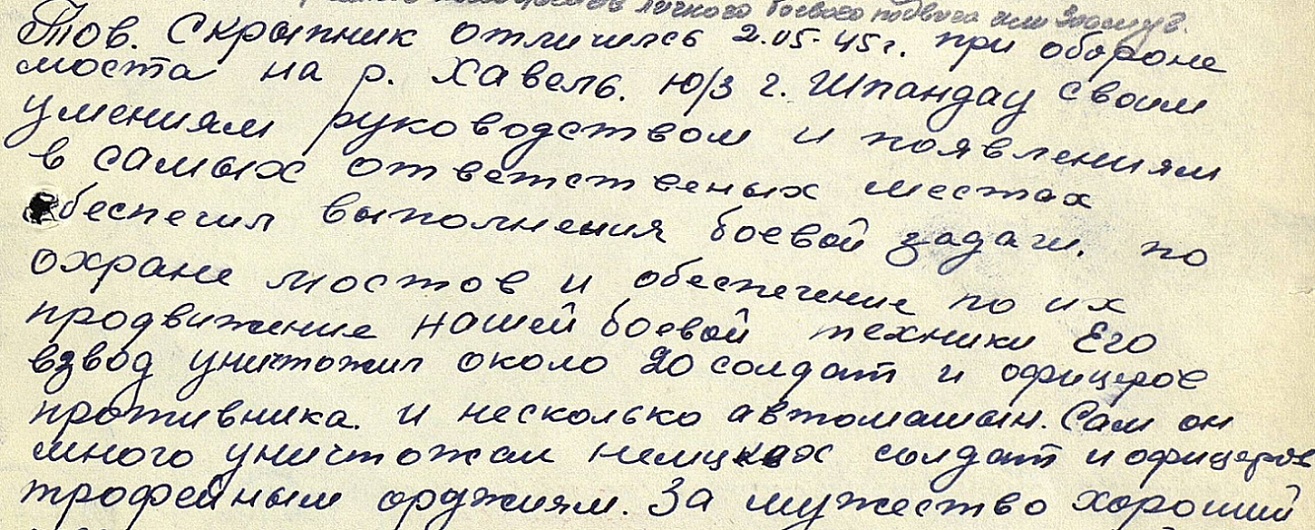 личного боевого подвига или заслуг.
Тов. Скрыпник отличился 2.05-45г. при обороне
моста на р. Хавель. ю/з г. Шпандау своим
умениям руководством и появлениям
в самых ответственых местах
обеспечил выполнения боевой задачи. по
охране мостов и обеспечение по их
продвижение нашей боевой техники Его
взвод уничтожил около 20 солдат и офицеров
противника. и несколько автомашын. Сам он
много уничтожал немцких солдат и офицеров
трофейным оружиям. За мужество хороший